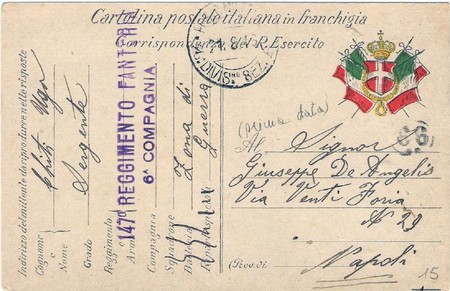 Cartolina postale italiana in franchigia
Corrispondenza del R. Esercito
DIVISne
147° REGGIMENTO FANTERI
6A COMPAGNIA
(prima data)
Al Signor
Giuseppe De Angelis
Via Venti Foria
N 29
(Prov. di
Napoli
15
Indirizzo del mittente da riprodurre nelle risposte
Cognome
e
Nome
Ugo
Grado
Sergente
Reggimento
Arma
Compagnia
Squadrone
Batteria
Zona di
Guerra